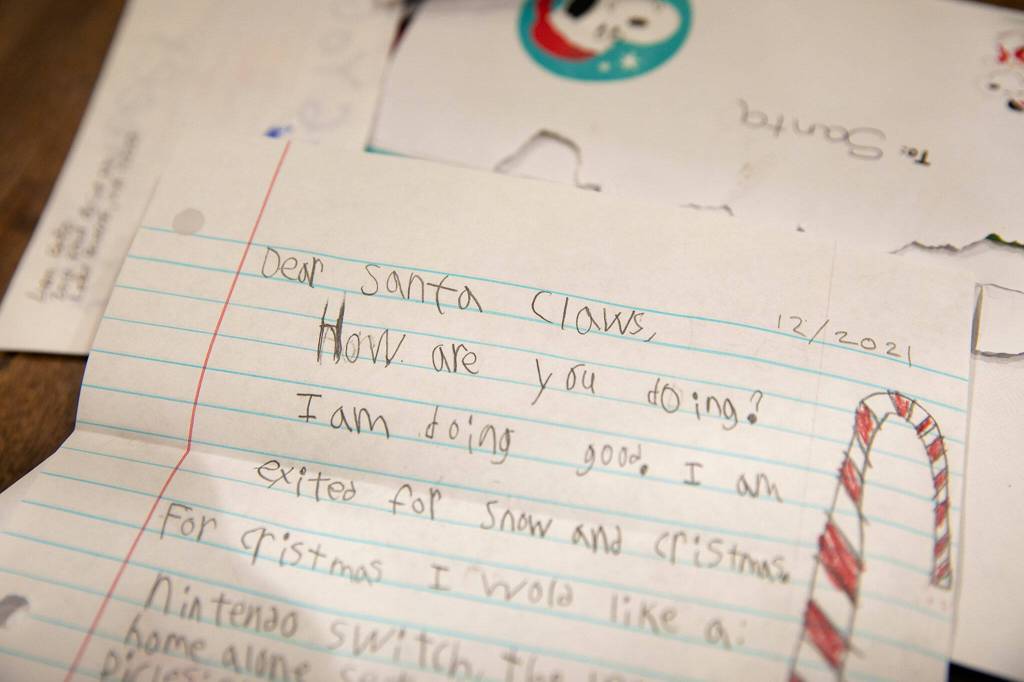 To: Santa
Dear Santa Claws,
12/2021
How are you doing?
I am doing good. I am
exited for snow and cristmas.
For cristmas I wold like a:
Nintendo switch, the
home alone